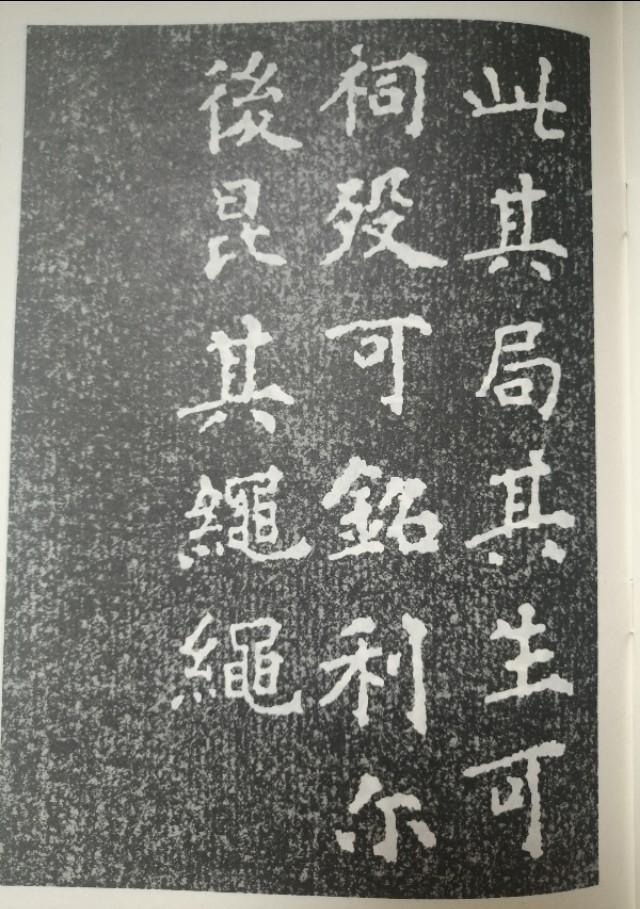 此其局其生可
祠殁可銘利尔
後昆其繩繩